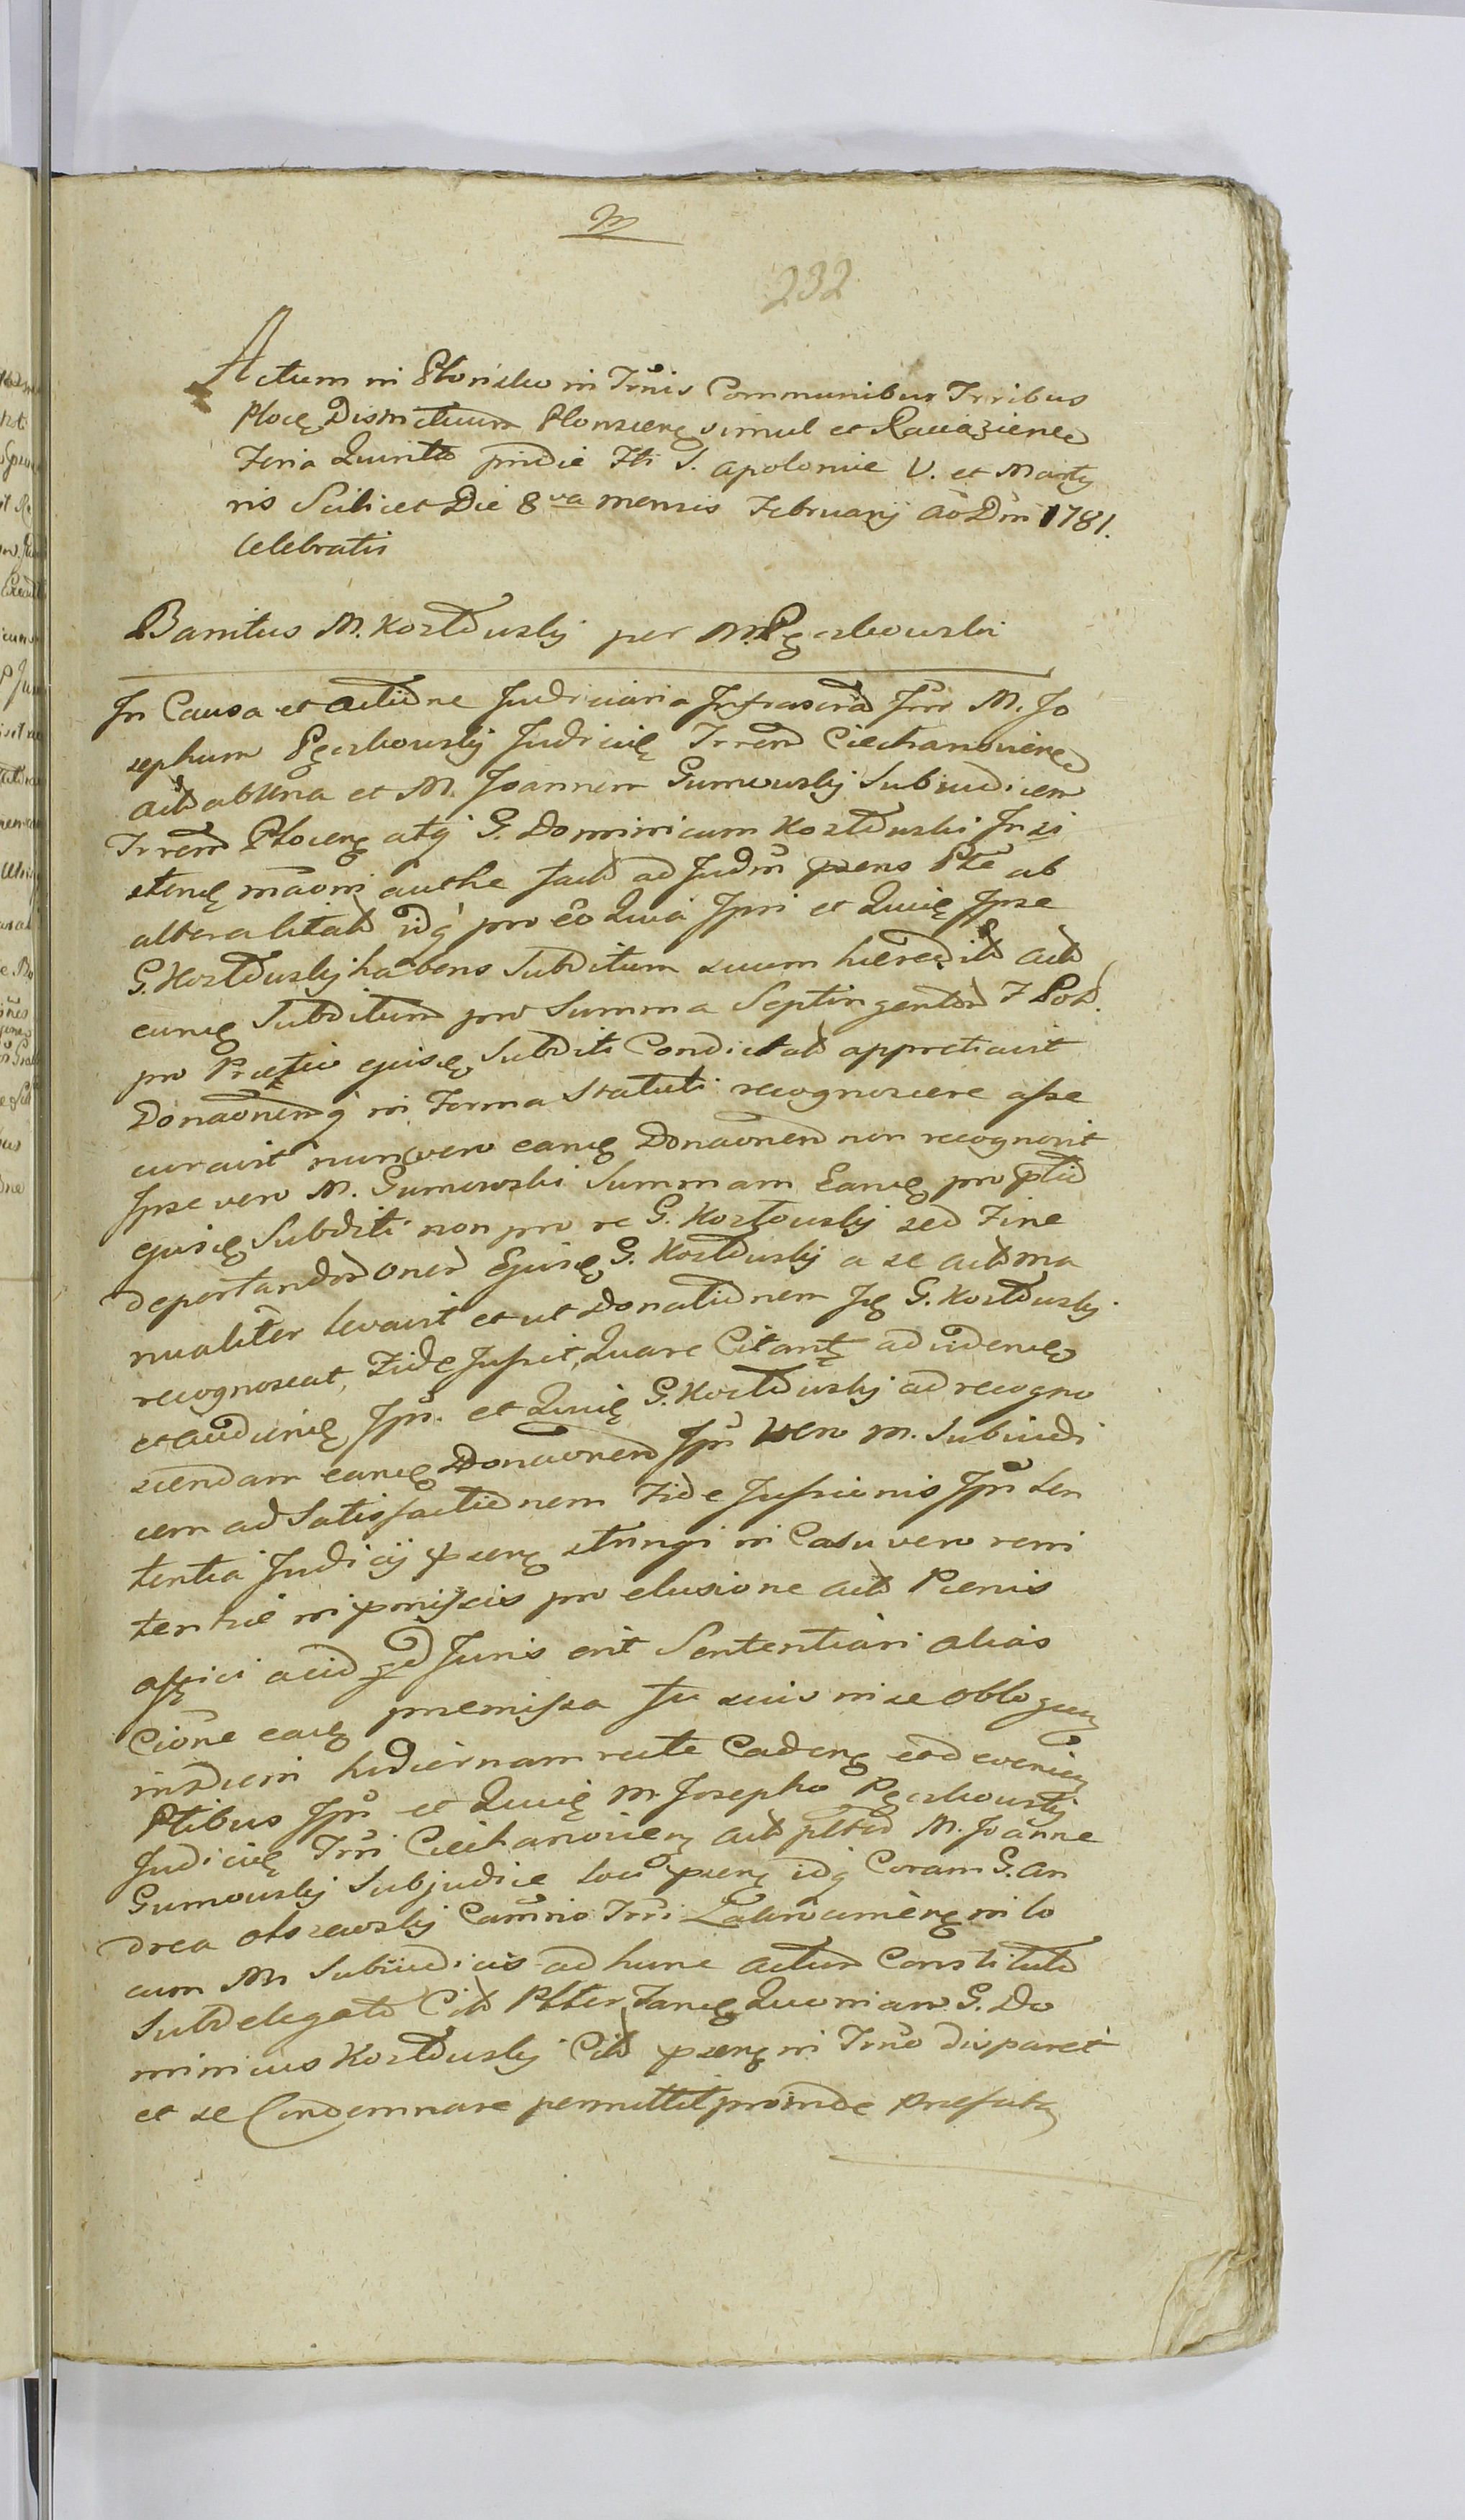 232
Actum in Płońsko in Trñis Communibus Trribus
Płocę Districtuum Płonscenę simul et Raciązienę
Feria Quinta pridie Fti S. Apoloniæ V. et Marty
ris Scilicet Die 8va mensis Februarij Aõ Dni 1781.
Celebratis
Banitus M. Kostowskij per M. Pęczkowski
In Causa et actione Judiciaria Infrascrta Intr M. Jo
sephum Pęczkowskij Judicię Trren Ciechanovienę
act ab una et M. Joannem Gumowskij Subiudicem
Trren Płocenę atq G. Dominicum Kostowski Insi
stenę maõni authe fact ad Judm psens Pte ab
altera citat idq pro eo Quia Ipsi et Quię Ipse
G. Kostowskij habens Subditum suum hæredit act
eunę Subditum pro Summa Septingentor F Pol.
pro Prætio ejusę Subditi Condictat appretiavit
Donaõnemq in Forma Statuti recognoscere asse
curavit nunc vero eanę Donaõnem non recognovit
Ipse vero M. Gumowski Summam Eanę pro ptio
ejusę Subditi non pro re G. Kostowskij sed Fine
deportandor oner Ejusę G. Kostowskij a se act ma
nualiter levavit et ut Donationem Ję G. Kostowskij
recognoscat, Fide Jussit, Quare Citantę ad videnę
et audienę Ips. et Quię G. Kostowskij ad recogno
scendam eanę Donaõnem Ips vero M. Subiudi
cem ad Satisfactionem Fide Jussionis Ips Sen
tentia Judicij psenę stringi in Casu vero reni
tentiæ in pmissis pro elusione act Pænis
affici acid qd Juris erit Sententiari alias
Cione eaę premissa fu suis in se obloquen
in diem hodiernam recte Cadenę et devenien
Ptibus Ips et Quię M. Josepho Pęczkowskij
Judicię Trri Ciechanovienę act plter M. Joanne
Gumowskij Subjudice loci psenę idq Coram G. An
drea Olszewskij Camrio Trri Zakroczimenę in lo
cum M. Subiudicis ad hunc actum Constituto
Subdelegato Cit Plter Tanę Quoniam G. Do
minicus Kostowskij Cit psenę in Trno disparet
et se Condemnare permittit proinde Præfata